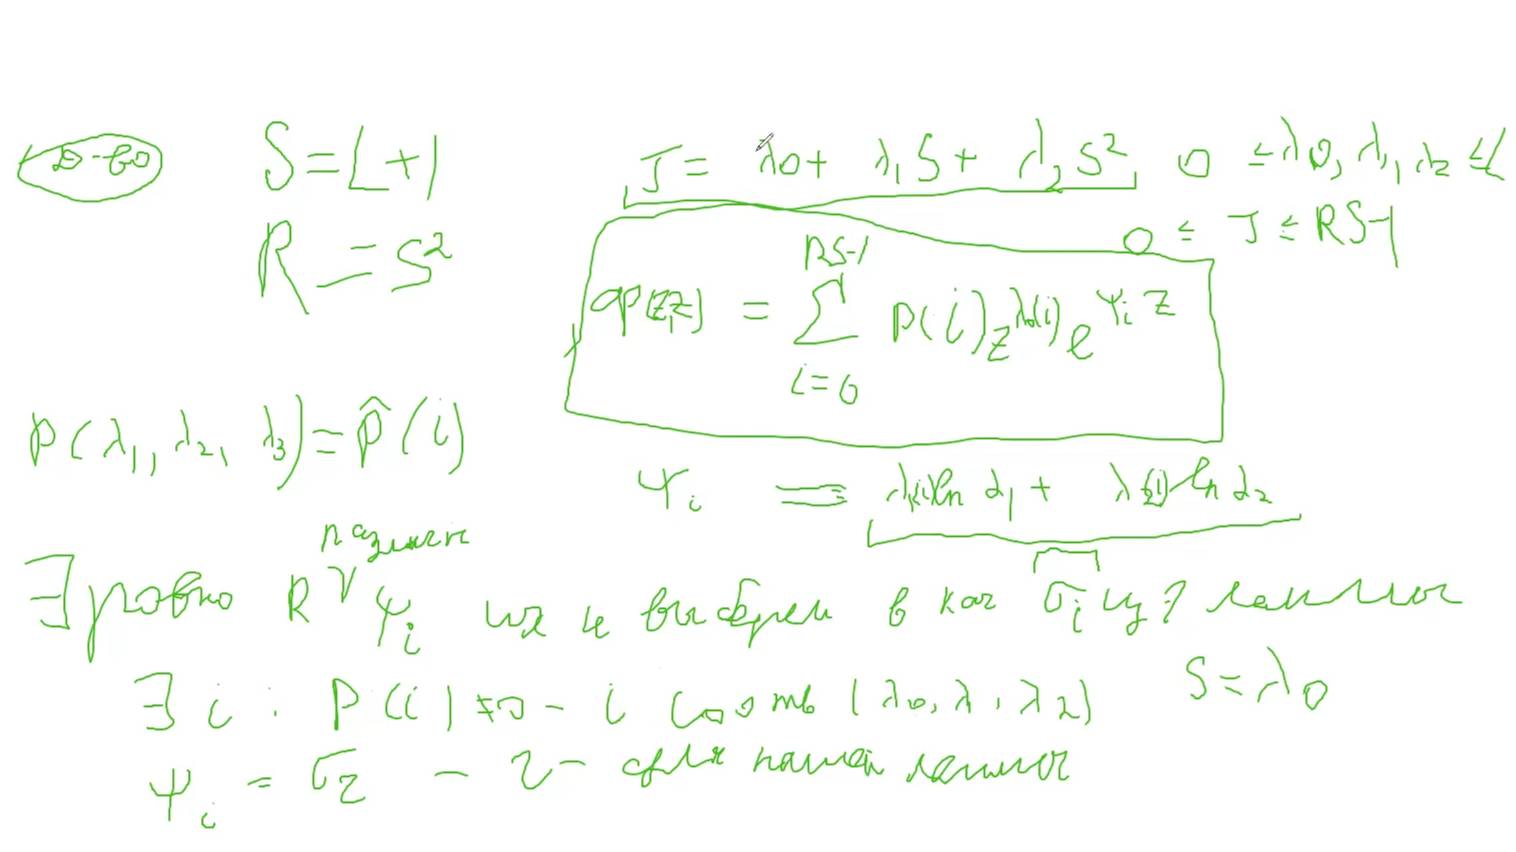 Д-во
S = L + 1
R = S²
J = λ0 + λ₁S + λ₂S²   0 ≤ λ0, λ₁, λ₂ ≤ L
0 ≤ J ≤ RS-1
φ(z,z) = ∑_{i=0}^{RS-1} P(i) z^{λ₀(i)} e^{ψ_i z}
P(λ₁, λ₂, λ₃) = P̂(i)
ψ_i = λ₁(i) ln α₁ + λ₂(i) ln α₂
различн
∃ ровно R ψ_i их и выберем в кач σ_i из леммы
∃ i : P(i) ≠ 0 - i соотв (λ₀, λ₁, λ₂)   S = λ₀
ψ_i = σ_r - r - для нашей леммы